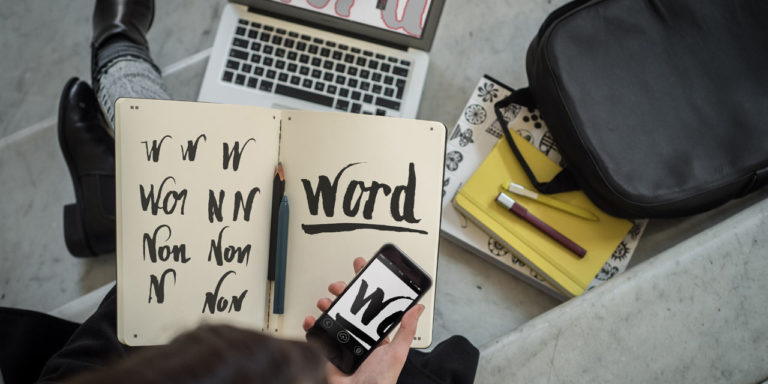 w w w
Wor N N
Non Non
N Non
word
W